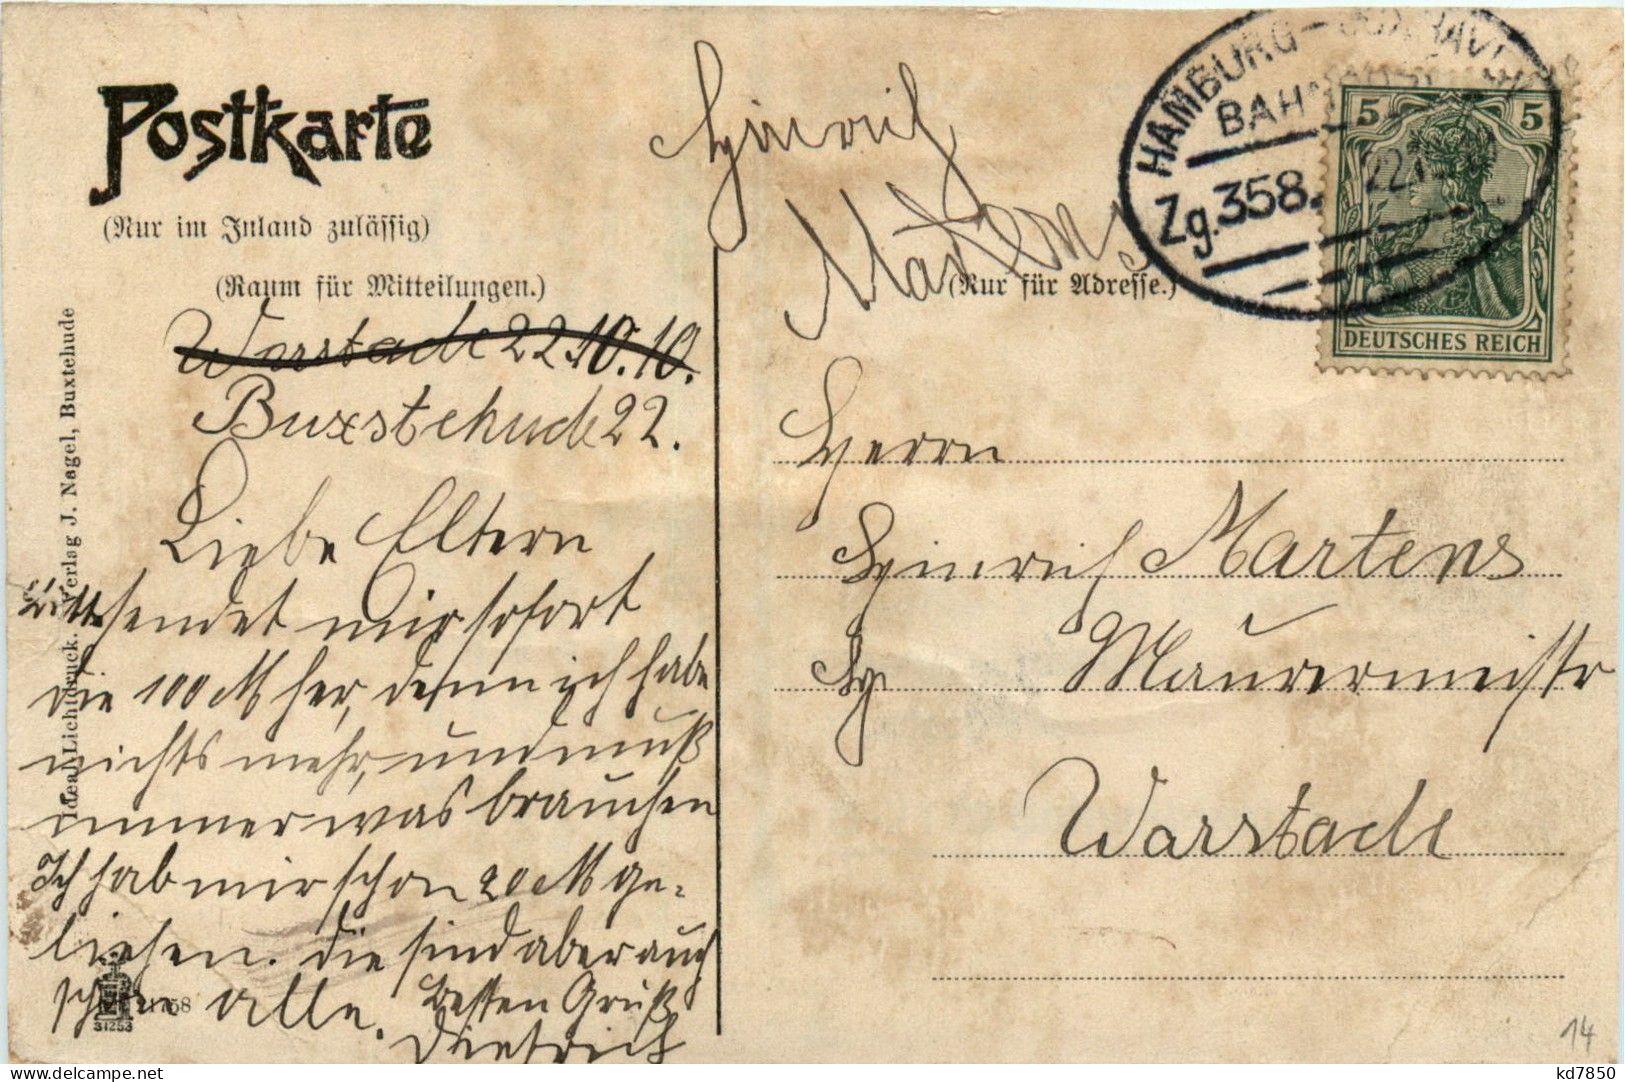 Postkarte
(Nur im Inland zulässig)
(Raum für Mitteilungen.)
Warstade 22.10.10.
Buxstehude 22.
Liebe Eltern
Bitte sendet mir sofort
die 100 M her, denn ich habe
nichts mehr, und muß
immer was brauchen
Ich hab mir schon 20 M ge-
liehen. die sind aber auch
schon alle. Besten Gruß
Dietrich
Ideal Lichtdruck. Verlag J. Nagel, Buxtehude
31253
Heinrich
Martens
(Nur für Adresse.)
HAMBURG - CUXHAVEN
BAHNPOST
Zg. 358.
5 5
DEUTSCHES REICH
Herrn
Heinrich Martens
Maurermeistr
Warstade
14
kd7850